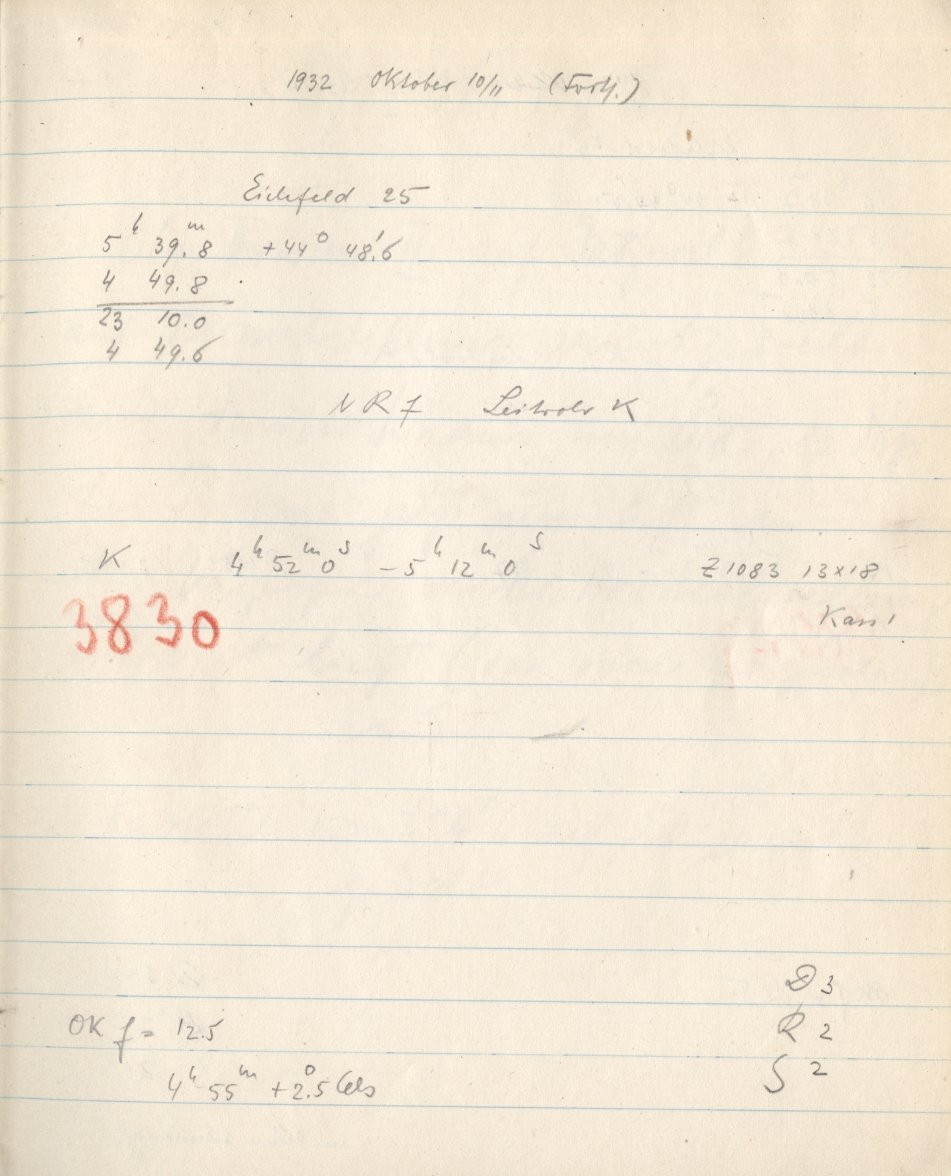 1932 Oktober 10/11 (Forts.)
Eichfeld 25
5ʰ 39.ᵐ8 +44° 48.'6
4 49.8
23 10.0
4 49.6
N R f Leitrohr K
K 4ʰ 52ᵐ 0ˢ – 5ʰ 12ᵐ 0ˢ Z 1083 13x18
3830 Kass 1
D 3
OK f = 12.5 R 2
4ʰ 55ᵐ +2.°5 Cels S 2